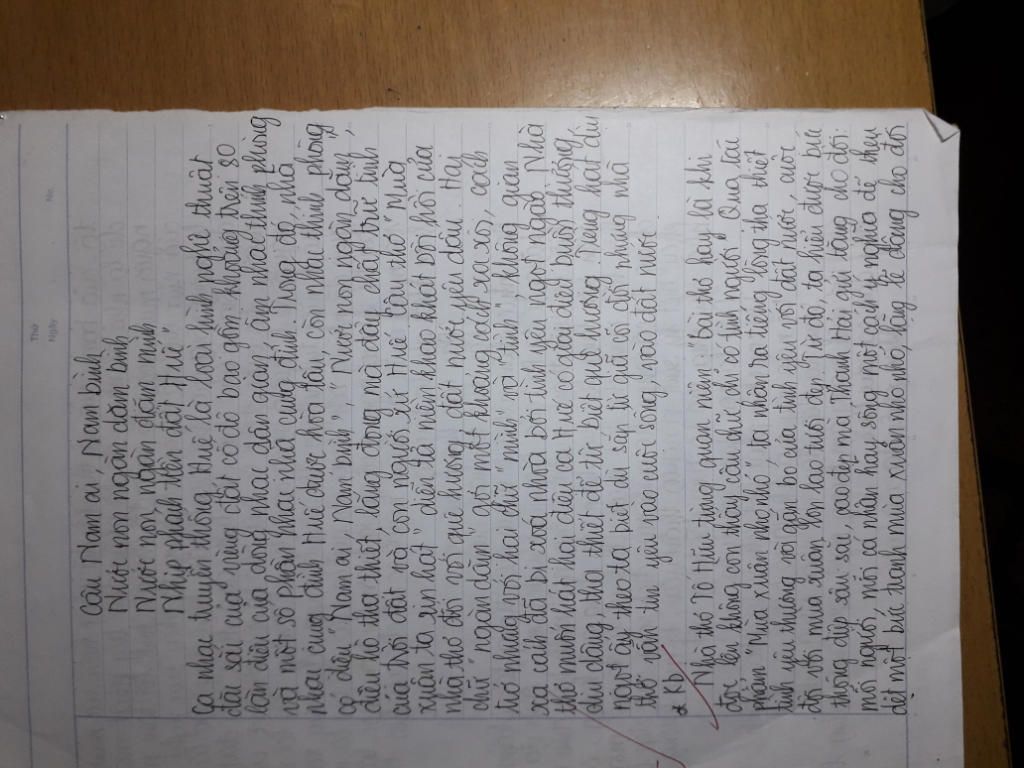 Thứ
Ngày
No.
Câu Nam ai, Nam bình
Nước non ngàn dặm bình
Nước non, ngàn dặm mình
Nhịp phách tiền đất Huế"
Ca nhạc truyền thống Huế là loại hình nghệ thuật
đặc sắc của vùng đất cố đô bao gồm khoảng trên 80
làn điệu của dòng nhạc dân gian, âm nhạc thính phòng
và một số phân nhánh nhã cung đình. Trong đó, nhã
nhạc cung đình Huế được hòa tấu, còn nhạc thính phòng
có điệu "Nam ai, Nam bình". "Nước non ngàn dặm",
điệu hò tha thiết, lắng đọng mà dạy chất trữ tình
của trời đất và con người xứ Huế. Câu thơ "Mùa
xuân ta xin hát" diễn tả niềm khao khát bồi hồi của
nhà thơ đối với quê hương, đất nước yêu dấu. Hai
chữ "ngàn dặm" gợi một khoảng cách xa xôi, cách
trở nhưng với hai chữ "mình" và "tình", không gian
xa cách đã bị xoá nhoà bởi tình yêu ngọt ngào. Nhà
thơ muốn hát hai điệu ca Huế có giai điệu buồn thương,
dịu dàng, tha thiết để từ biệt quê hương. Tiếng hát dịu
ngọt ấy theo ta biết dù sắp từ giã cõi đời nhưng nhà
thơ vẫn tin yêu vào cuộc sống, vào đất nước.
* Kb
Nhà thơ Tố Hữu từng quan niệm "bài thơ hay là khi
đọc lên không còn thấy câu chữ, chỉ có tình người". Qua tác
phẩm "Mùa xuân nho nhỏ", ta nhận ra tiếng lòng tha thiết
tình yêu thương và gắn bó của tình yêu với đất nước, cuộc
đời với mùa xuân lớn lao tươi đẹp. Từ đó, ta hiểu được bức
thông điệp sâu sắc, cao đẹp mà Thanh Hải gửi tặng cho đời:
mỗi người, mỗi cá nhân hãy sống một cách ý nghĩa để thêu
dệt một bức tranh mùa xuân nho nhỏ, lặng lẽ dâng cho đời